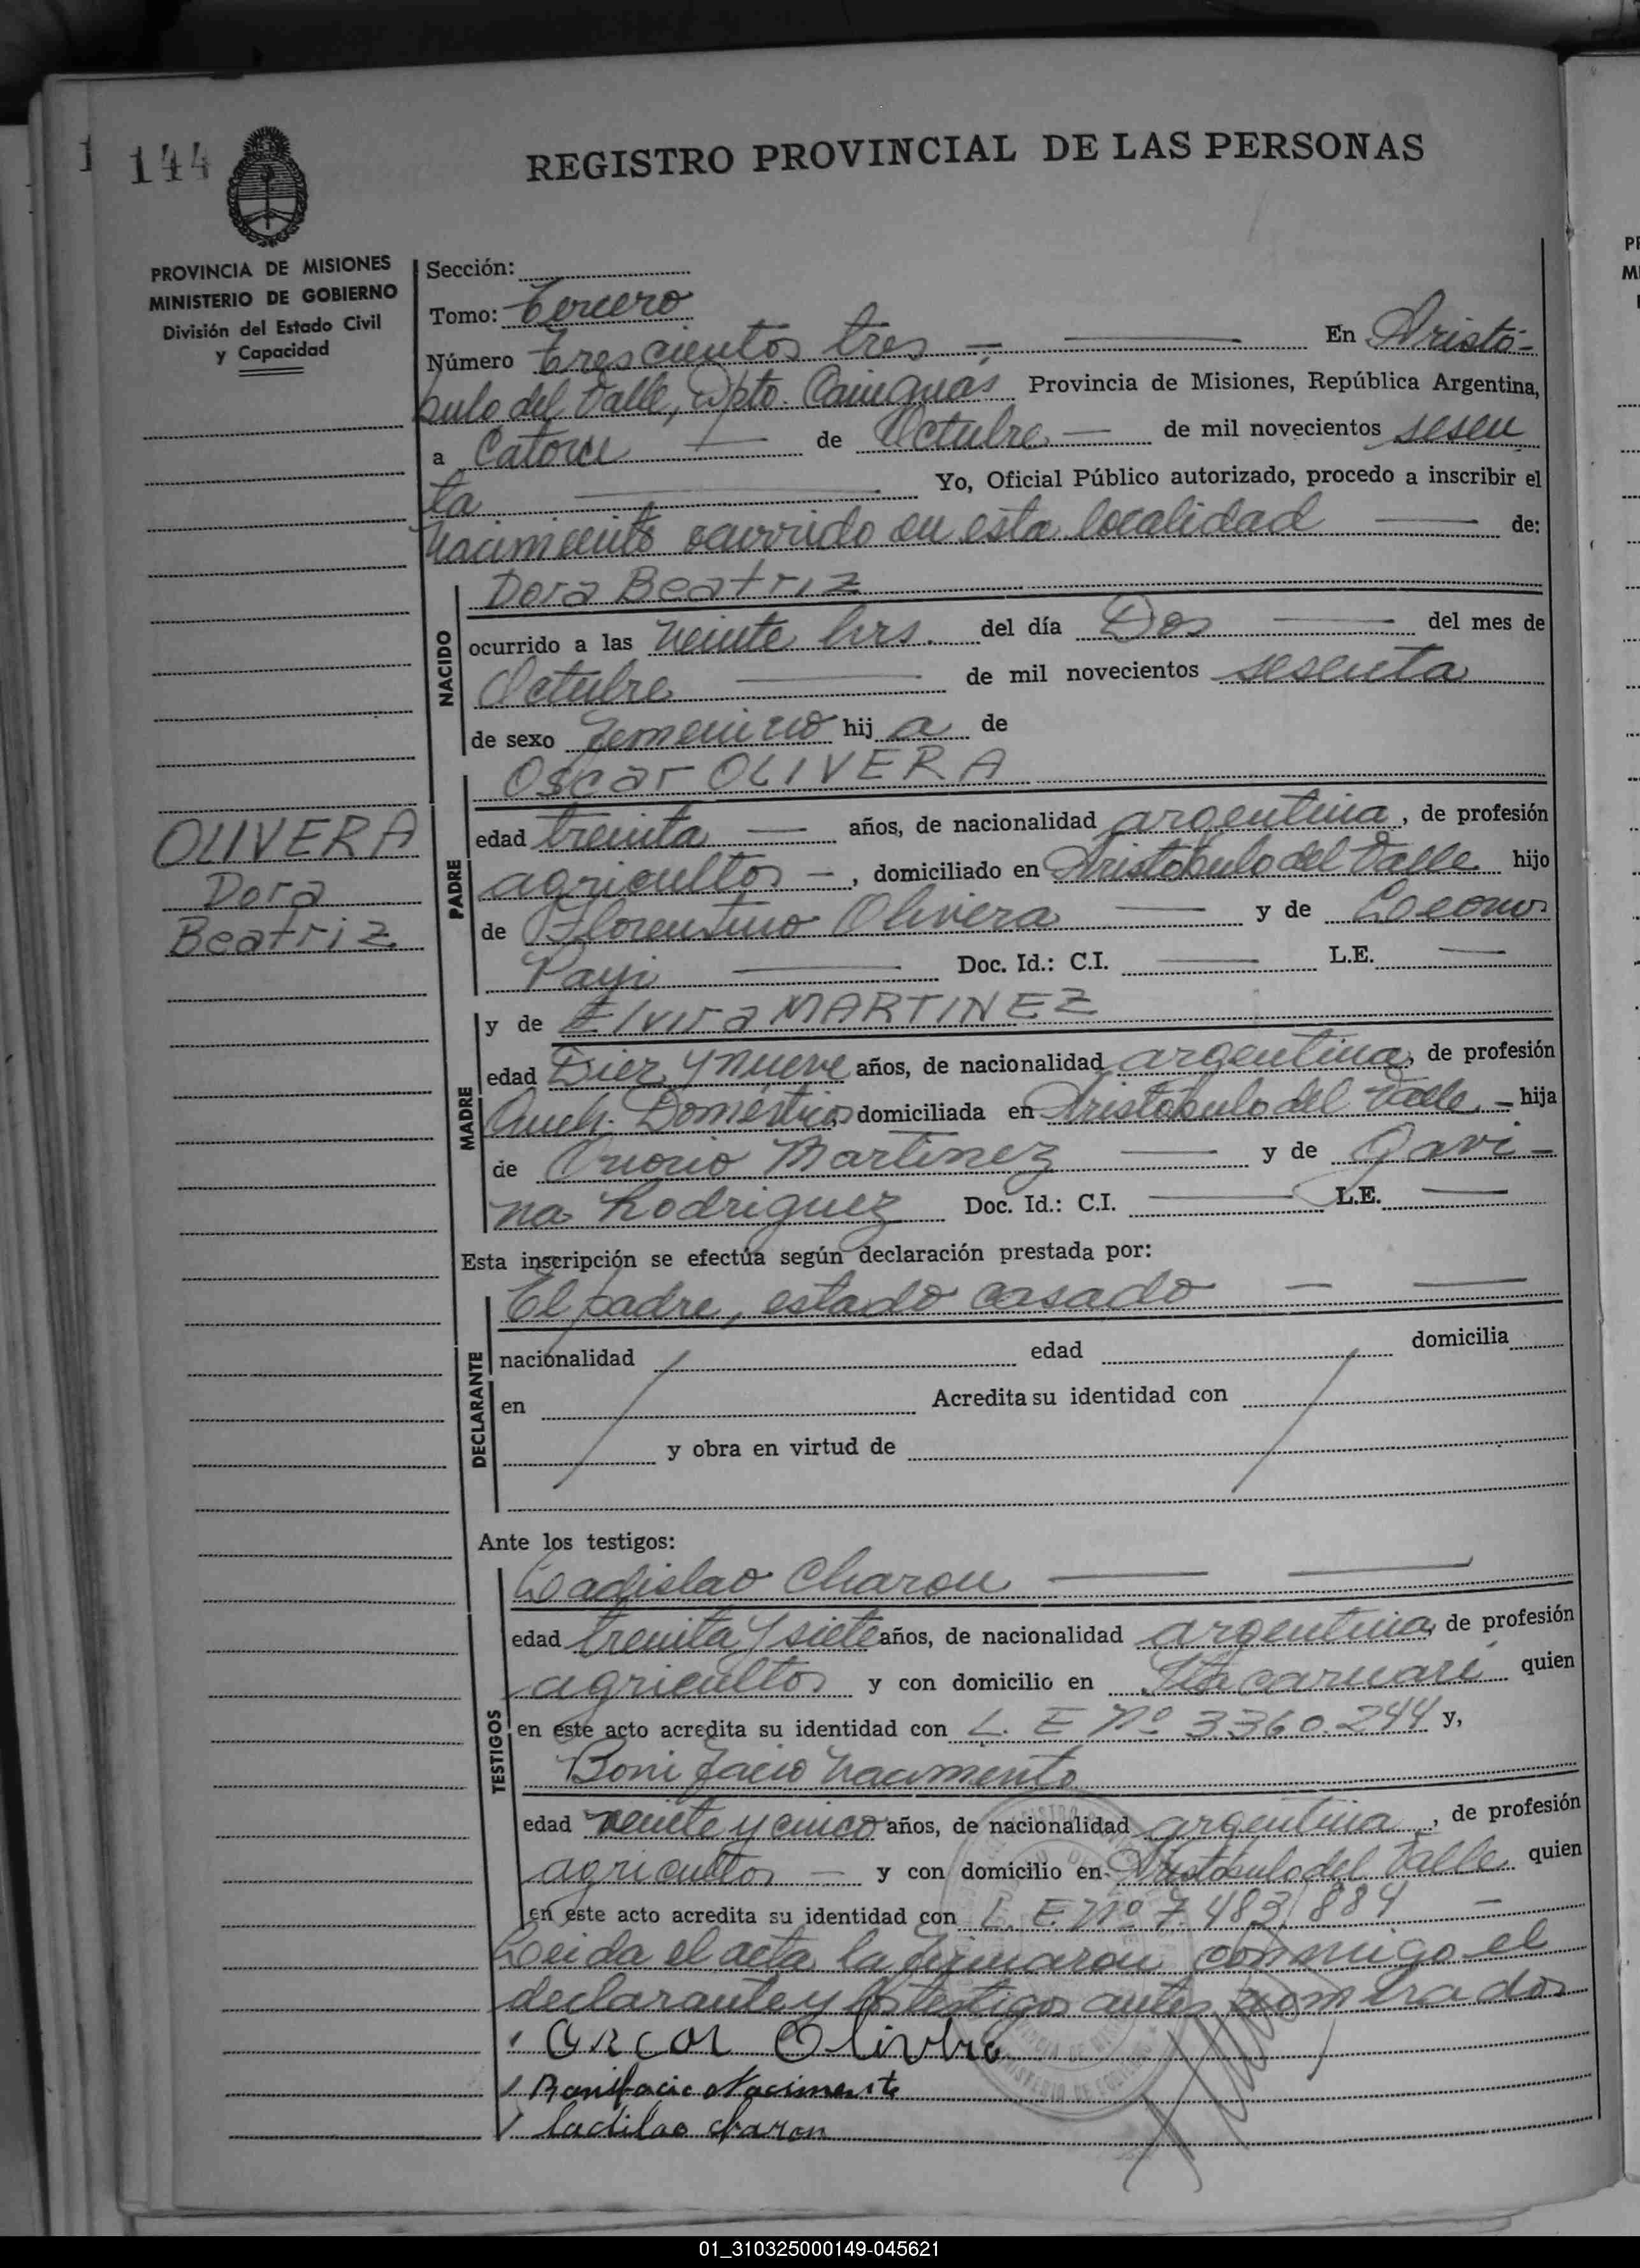 144
REGISTRO PROVINCIAL DE LAS PERSONAS
PROVINCIA DE MISIONES
MINISTERIO DE GOBIERNO
División del Estado Civil
y Capacidad
Sección:
Tomo: Tercero
Número Trescientos tres En Aristó-
bulo del Valle, Dpto. Cainguás Provincia de Misiones, República Argentina,
a Catorce de Octubre de mil novecientos sesen
ta Yo, Oficial Público autorizado, procedo a inscribir el
nacimiento ocurrido en esta localidad de:
NACIDO
Dora Beatriz
ocurrido a las veinte hrs. del día Dos del mes de
Octubre de mil novecientos sesenta
de sexo femenino hij a de
PADRE
Oscar OLIVERA
edad treinta años, de nacionalidad argentina, de profesión
agricultor, domiciliado en Aristóbulo del Valle hijo
de Florentino Olivera y de
Payi Doc. Id.: C.I. L.E.
OLIVERA
Dora
Beatriz
MADRE
y de Elvira MARTINEZ
edad Diez y nueve años, de nacionalidad argentina, de profesión
Queh. Domésticos domiciliada en Aristóbulo del Valle hija
de Martinez y de Gavi-
na Rodriguez Doc. Id.: C.I. L.E.
Esta inscripción se efectúa según declaración prestada por:
DECLARANTE
El padre, estado casado
nacionalidad edad domicilia
en Acredita su identidad con
y obra en virtud de
Ante los testigos:
TESTIGOS
Ladislao Charon
edad treinta y siete años, de nacionalidad argentina, de profesión
agricultor y con domicilio en quien
en este acto acredita su identidad con L. E Nº 3.360.244 y,
Bonifacio Nacimento
edad veinte y cinco años, de nacionalidad argentina, de profesión
agricultor y con domicilio en Aristóbulo del Valle quien
en este acto acredita su identidad con L. E. Nº 7.483.884
Leida el acta la firmaron conmigo el
declarante y los testigos antes nombrados
Oscar Olivera
Bonifacio Nacimento
Ladilao Charon
01_310325000149-045621